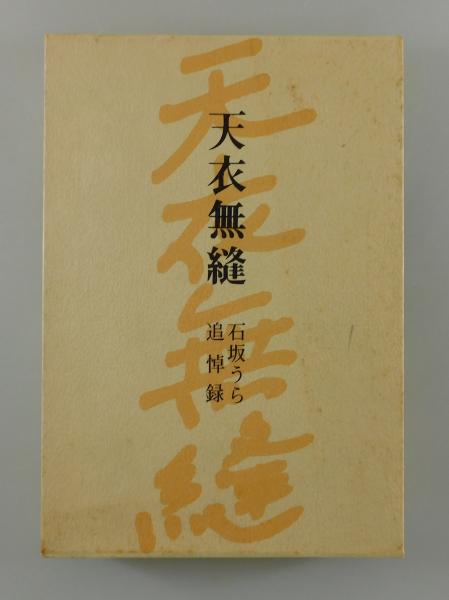 天衣無縫
天衣無縫
石坂うら
追悼録